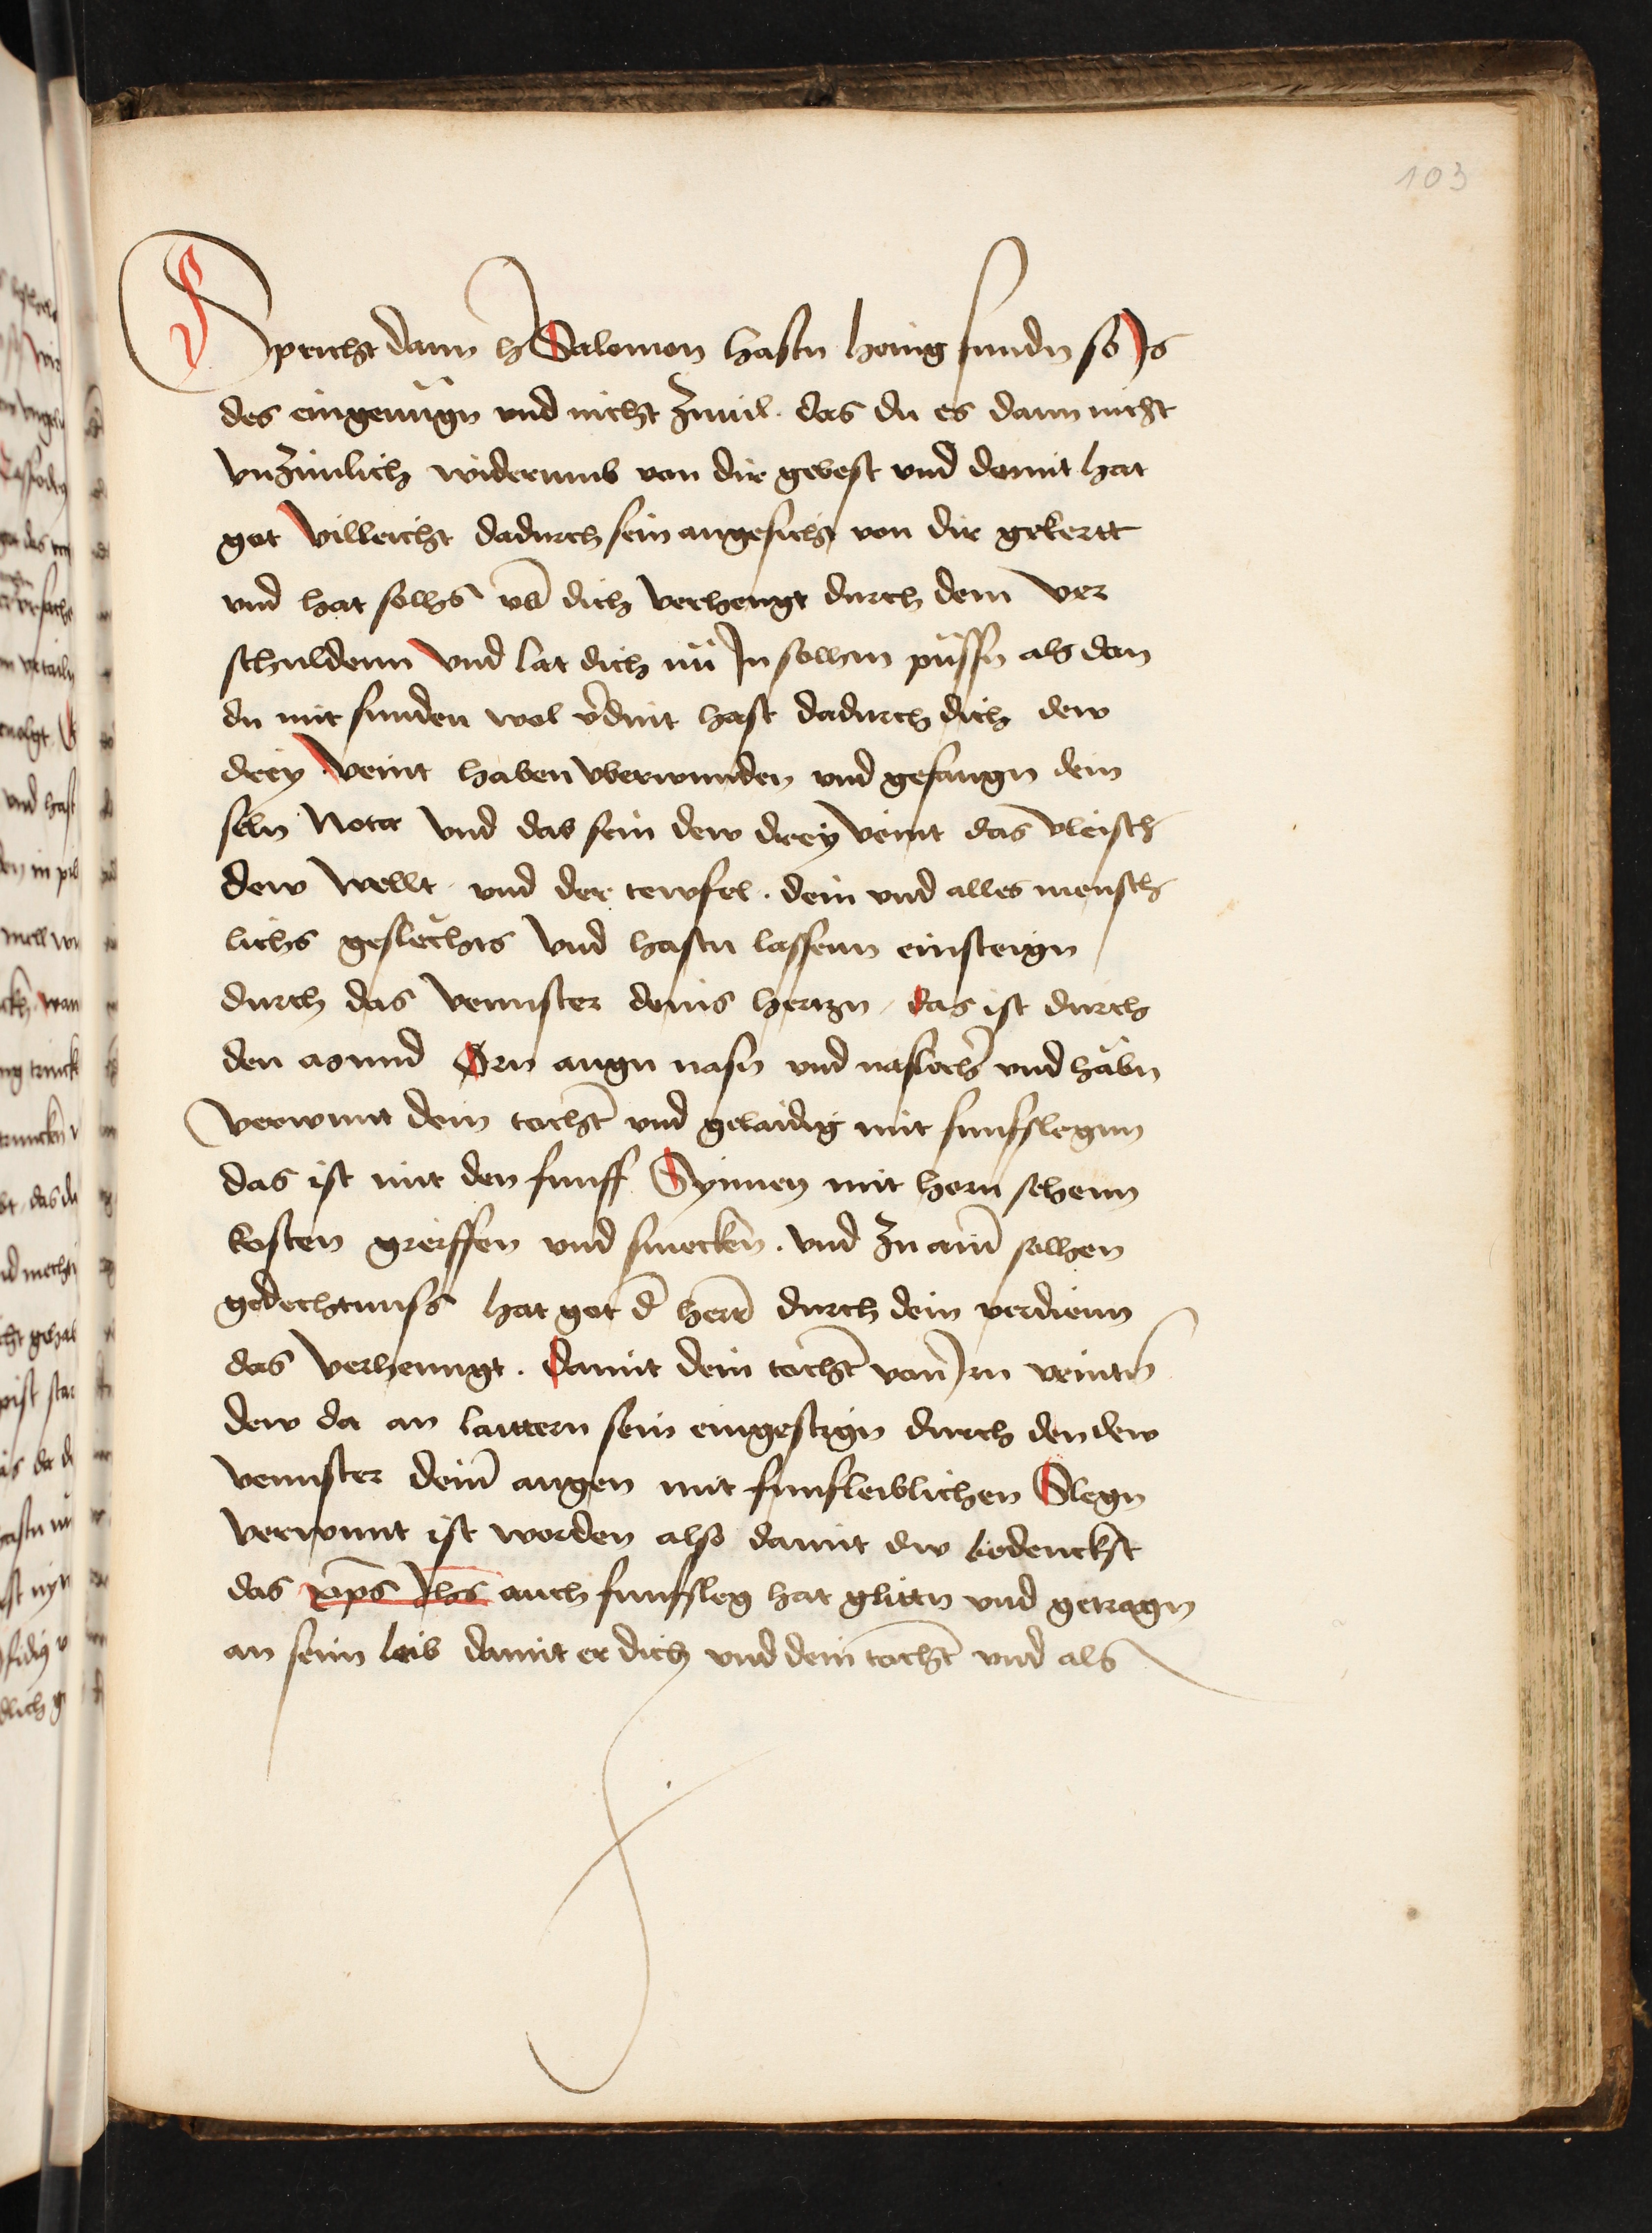 103
Spricht dann h Salomon hastu honig fundn so Is
des eingenugn vnd nicht Zuuil. das du es dann nicht
vnzimlich widerumb von dir gebest vnd damit hat
got villeicht dadurch sein angesicht von dir gekertt
vnd hat solhs vb̄ dich verhengt durch dein ver
schuldenn vnd lat dich nu In solhen pussn als dan
du mit sunden wol v̄dint hast dadurch dich dew
drey veint haben vberwunden vnd gefangn dein
seln Nota vnd das sein dew drey veint das vleisch
dew wellt. vnd der tewfel. dein vnd alles mensch
lichs geslechts vnd hastu lassenn einsteign
durch das vennster deins hertzn, das ist durch
den mund Orn augn nasn vnd naslochē vnd habn
verwunt dein tochtē vnd gelaidig mit funfslegnn
das ist mit den funff Synnen mit horn sehenn
kosten greiffen vnd smecken. vnd Zu aim̄ solhen
gedechtnuss hat got d̄ herr̄ durch dein verdienn
das verhenngt. damit dein tochtē von Irn veintn
dew da an laittern sein eingestign durch den dew
vennster dein̄ augen mit funfleiblichen Slegn
verwunt ist worden also damit dw bedenckst
das xp̄s Ihs auch funfsleg hat glittn vnd getragn
an seim leib damit er dich vnd dein tochtē vnd als